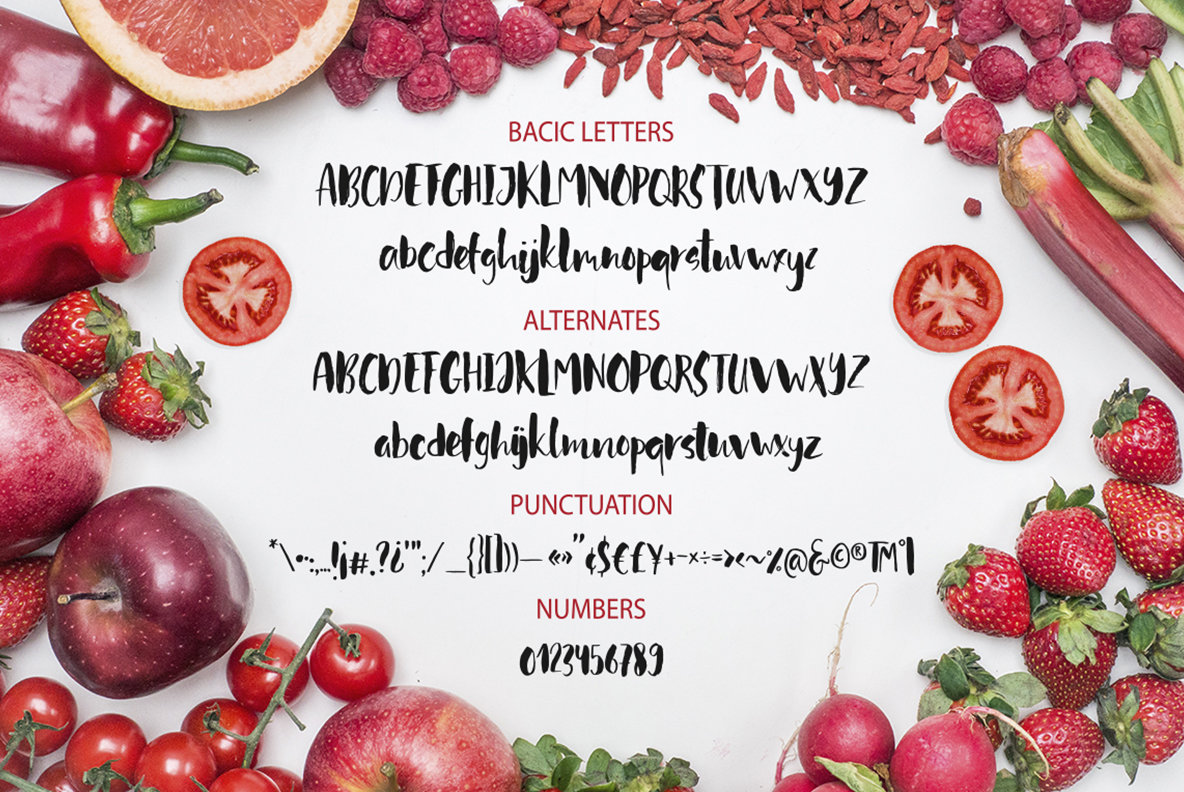 BACIC LETTERS
ABCDEFGHIJKLMNOPQRSTUVWXYZ
abcdefghijklmnopqrstuvwxyz
ALTERNATES
ABCDEFGHIJKLMNOPQRSTUVWXYZ
abcdefghijklmnopqrstuvwxyz
PUNCTUATION
*\•·:,...!¡#.?¿'";/_{}[]()—«»"¢$€£¥+−×÷=><~%@&©®™°|
NUMBERS
0123456789